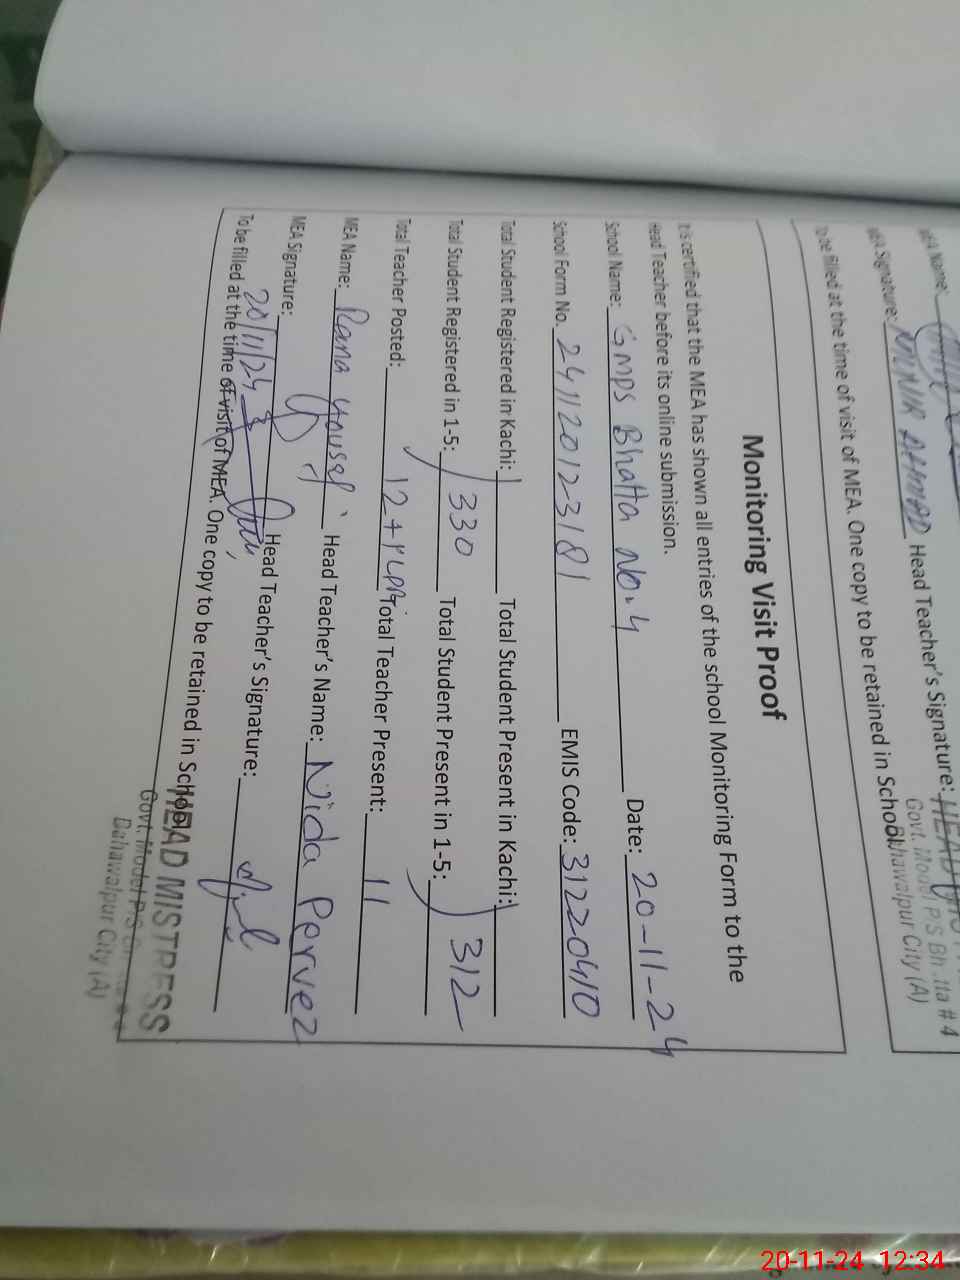 MEA Name:
MEA Signature: MUNIR AHMAD Head Teacher's Signature: HEAD
Govt. Model P/S Bh tta # 4
To be filled at the time of visit of MEA. One copy to be retained in School.
Bahawalpur City (A)
Monitoring Visit Proof
It is certified that the MEA has shown all entries of the school Monitoring Form to the
Head Teacher before its online submission.
School Name: GMPS Bhatta No.4 Date: 20-11-24
School Form No. 241120123181 EMIS Code: 31220410
Total Student Registered in Kachi: Total Student Present in Kachi:
Total Student Registered in 1-5: 330 Total Student Present in 1-5: 312
Total Teacher Posted: 12+1 Total Teacher Present: 11
MEA Name: Rana Yousaf Head Teacher's Name: Nida Pervez
MEA Signature: Head Teacher's Signature:
20/11/24
To be filled at the time of visit of MEA. One copy to be retained in School.
HEAD MISTRESS
Govt. Model P/S
Bahawalpur City (A)
20-11-24 12:34